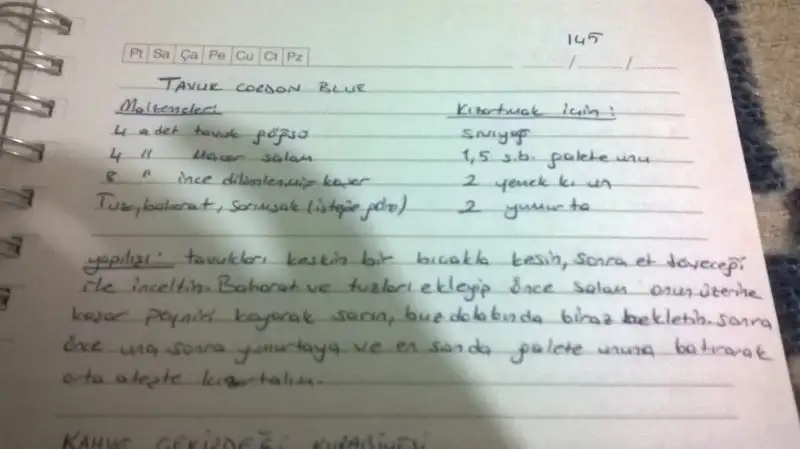 145
Pt Sa Ça Pe Cu Ct Pz
TAVUK CORDON BLUE
Malzemeler
Kızartmak için :
4 adet tavuk göğsü
sıvıyağ
4 " Macar salam
1,5 s.b. galete unu
8 " ince dilimlenmiş kaşar
2 yemek kı un
Tuz, baharat, sarımsak (isteğe göre)
2 yumurta
yapılışı: tavukları keskin bir bıcakla kesin, sonra et döveceği
ile inceltin. Baharat ve tuzları ekleyip önce salam onun üzerine
kaşar peyniri koyarak sarın, buzdolabında biraz bekletin. Sonra
önce una sonra yumurtaya ve en sonda galete ununa batırarak
orta ateşte kızartalım.
KAHVE ÇEKİRDEĞİ KURABİYESİ